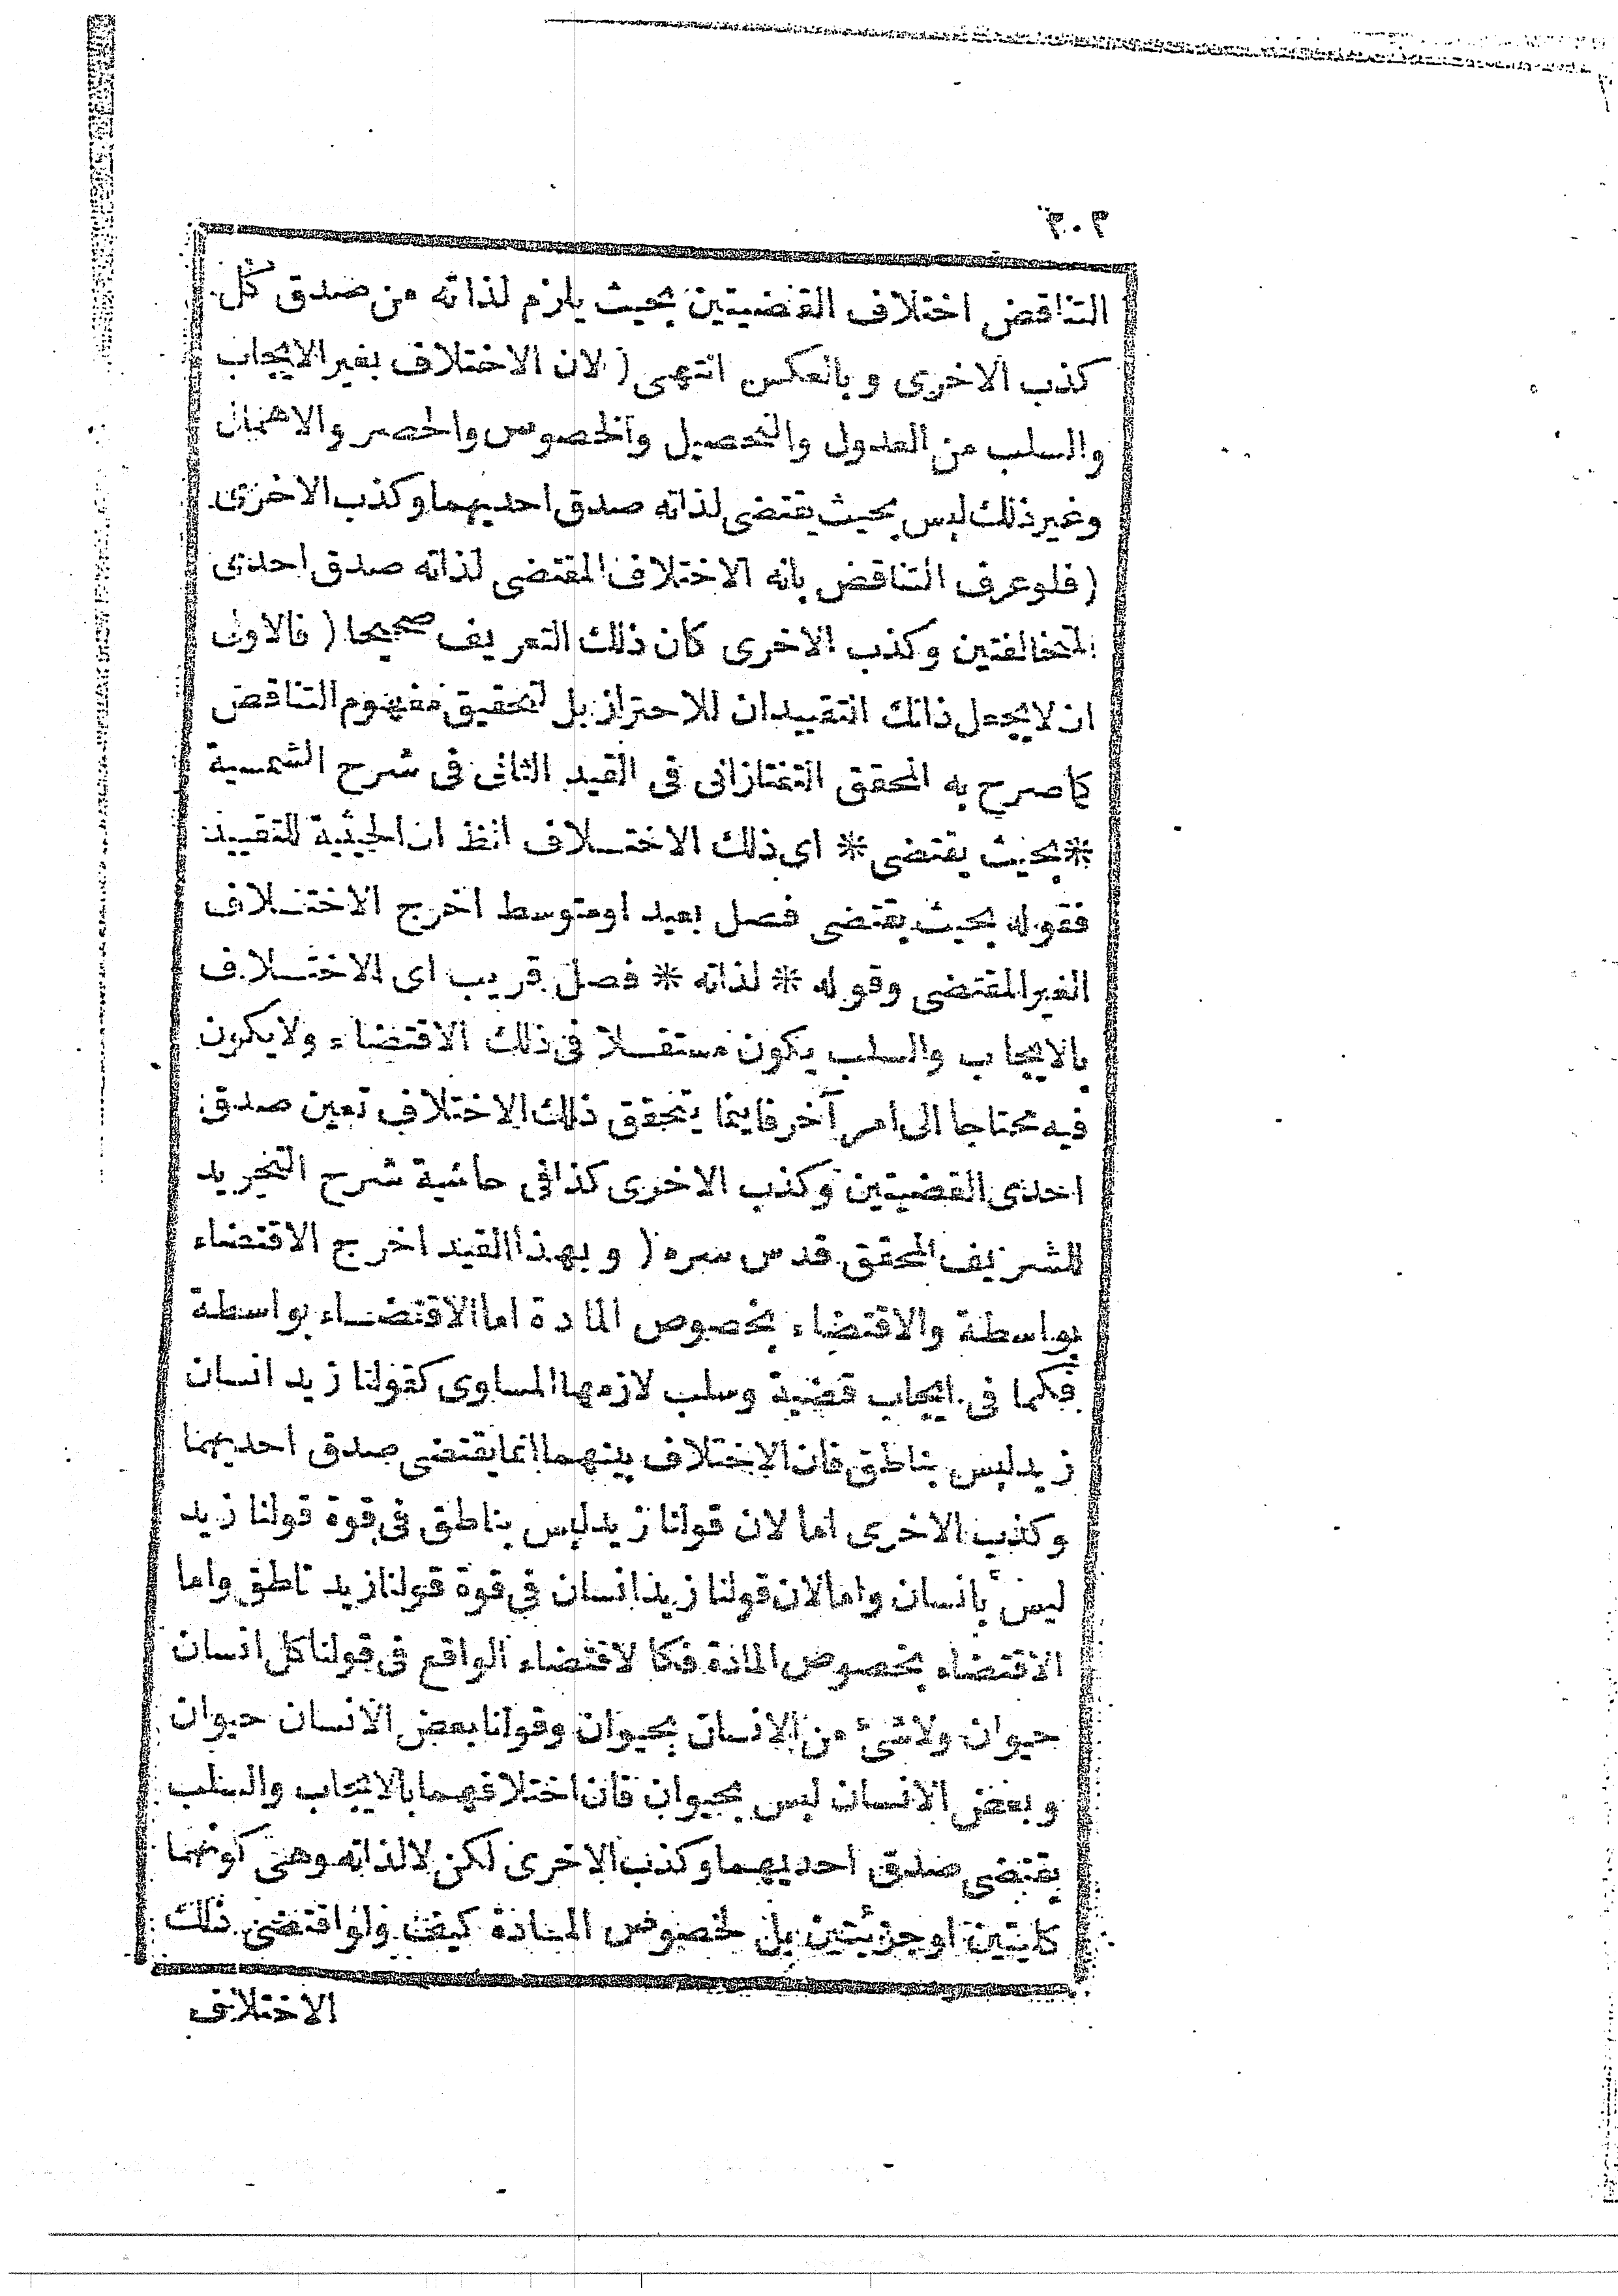 ٣٠٢
التناقض اختلاف القضيتين بحيث يلزم لذاته من صدق كل
كذب الاخرى وبالعكس انتهى ( لان الاختلاف بغير الايجاب
والسلب من العدول والتحصيل والخصوص والحصر والاهمال
وغير ذلك ليس بحيث يقتضى لذاته صدق احديهما وكذب الاخرى
( فلو عرف التناقض بانه الاختلاف المقتضى لذاته صدق احدى
المتخالفتين وكذب الاخرى كان ذلك التعريف صحيحا ( فالاولى
ان لا يجعل ذانك التقييدان للاحتراز بل لتحقيق مفهوم التناقض
كما صرح به المحقق التفتازانى فى القيد الثانى فى شرح الشمسية
* بحيث يقتضى * اى ذلك الاختلاف الظ ان الحيثية للتقييد
فقوله بحيث يقتضى فصل بعيد او متوسط اخرج الاختلاف
الغير المقتضى وقوله * لذاته * فصل قريب اى الاختلاف
بالايجاب والسلب يكون مستقلا فى ذلك الاقتضاء ولا يكون
فيه محتاجا الى امر آخر فاينما يتحقق ذلك الاختلاف تعين صدق
احدى القضيتين وكذب الاخرى كذا فى حاشية شرح التجريد
للشريف المحقق قدس سره ( وبهذا القيد اخرج الاقتضاء
بواسطة والاقتضاء بخصوص المادة اما الاقتضاء بواسطة
فكما فى ايجاب قضية وسلب لازمها المساوى كقولنا زيد انسان
زيد ليس بناطق فان الاختلاف بينهما انما يقتضى صدق احديهما
وكذب الاخرى اما لان قولنا زيد ليس بناطق فى قوة قولنا زيد
ليس بانسان واما لان قولنا زيد انسان فى قوة قولنا زيد ناطق واما
الاقتضاء بخصوص المادة فكالاقتضاء الواقع فى قولنا كل انسان
حيوان ولا شئ من الانسان بحيوان وقولنا بعض الانسان حيوان
وبعض الانسان ليس بحيوان فان اختلافهما بالايجاب والسلب
يقتضى صدق احديهما وكذب الاخرى لكن لا لذاته وهى كونهما
كليتين او جزئيتين بل لخصوص المادة كيف ولو اقتضى ذلك
الاختلاف